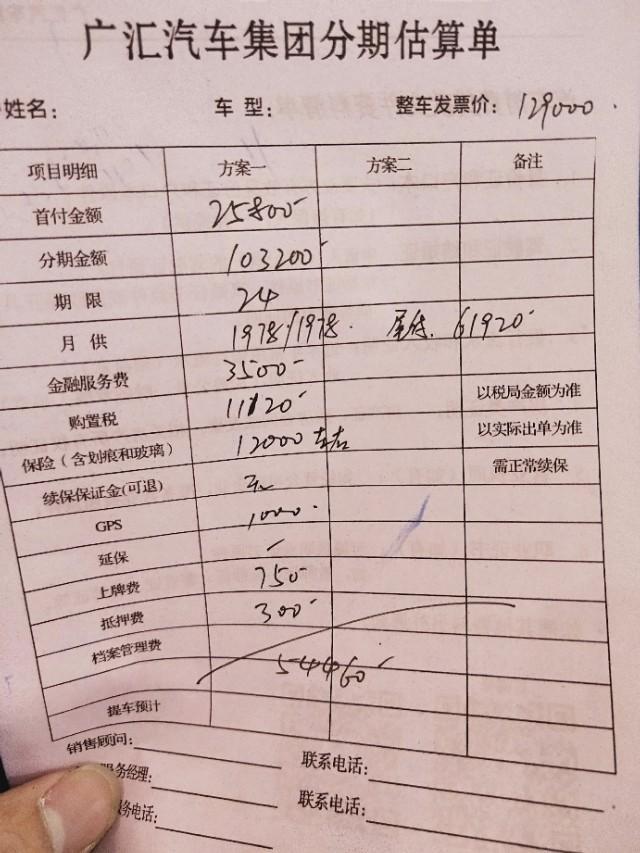 广汇汽车集团分期估算单
姓名: 车 型: 整车发票价: 129000
项目明细 方案一 方案二 备注
首付金额 25800
分期金额 103200
期 限 24
月 供 1978/1978. 尾款. 61920
金融服务费 3500
购置税 11120 以税局金额为准
保险（含划痕和玻璃） 12000 左右 以实际出单为准
续保保证金(可退) 无 需正常续保
GPS 1000
延保
上牌费 750
抵押费 300
档案管理费
54460
提车预计
销售顾问: 联系电话:
服务经理: 联系电话:
务电话: